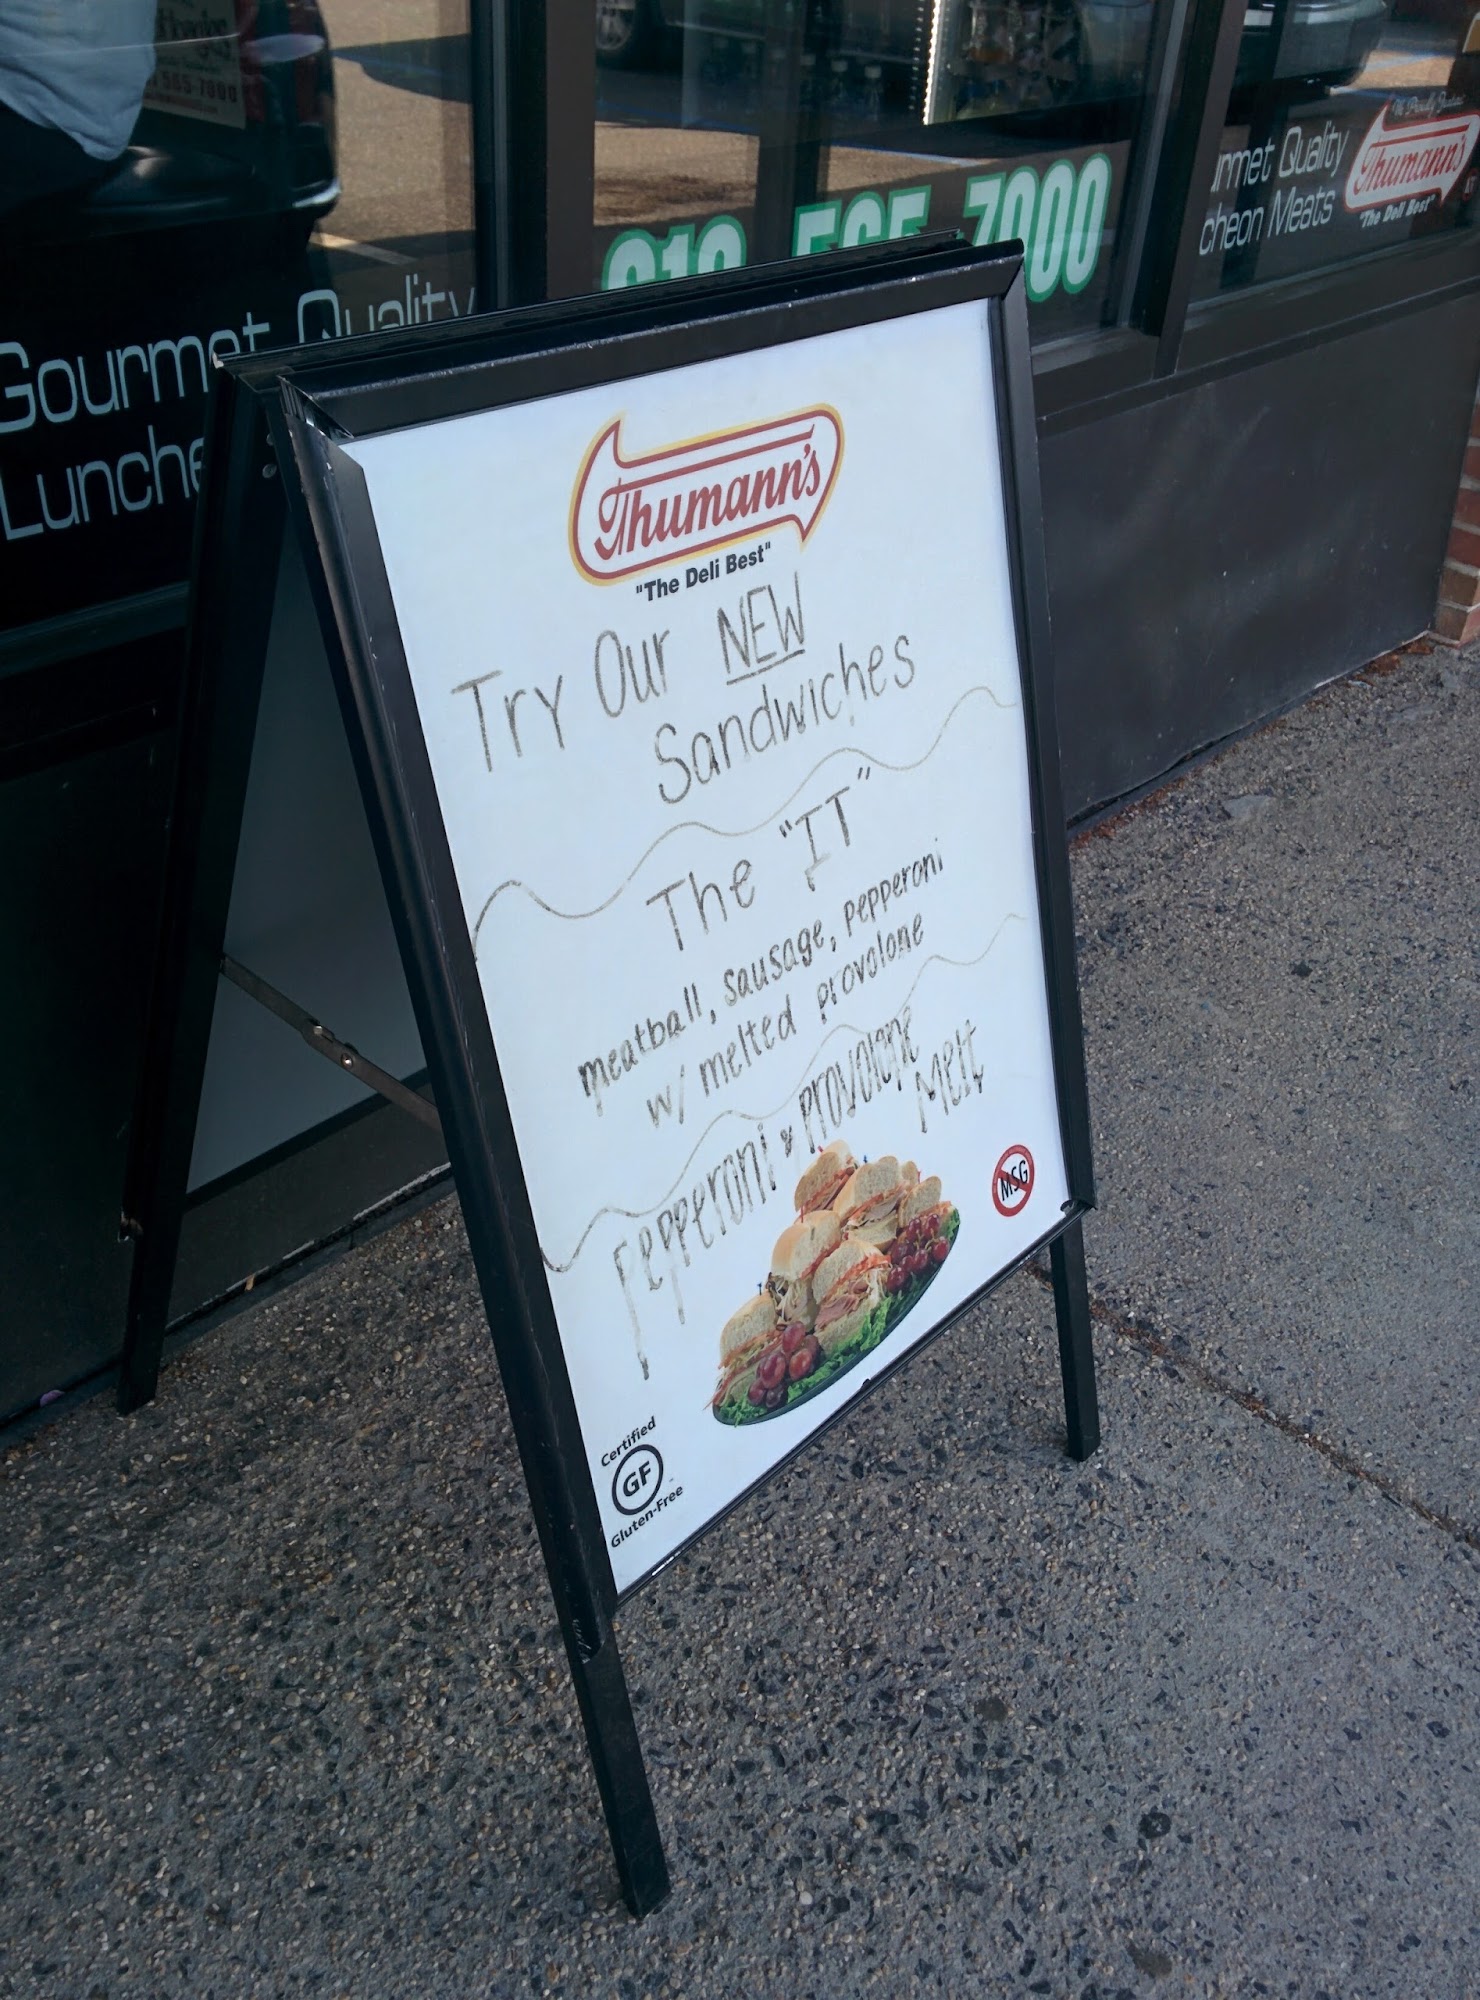 565-7000
Gourmet Quality
Lunche
565-7000
urmet Quality
cheon Meats
Thumann's
"The Deli Best"
Thumann's
"The Deli Best"
Try Our NEW
Sandwiches
The "IT"
meatball, sausage, pepperoni
w/ melted provolone
Pepperoni & Provolone
Melt
MSG
Certified
GF
Gluten-Free